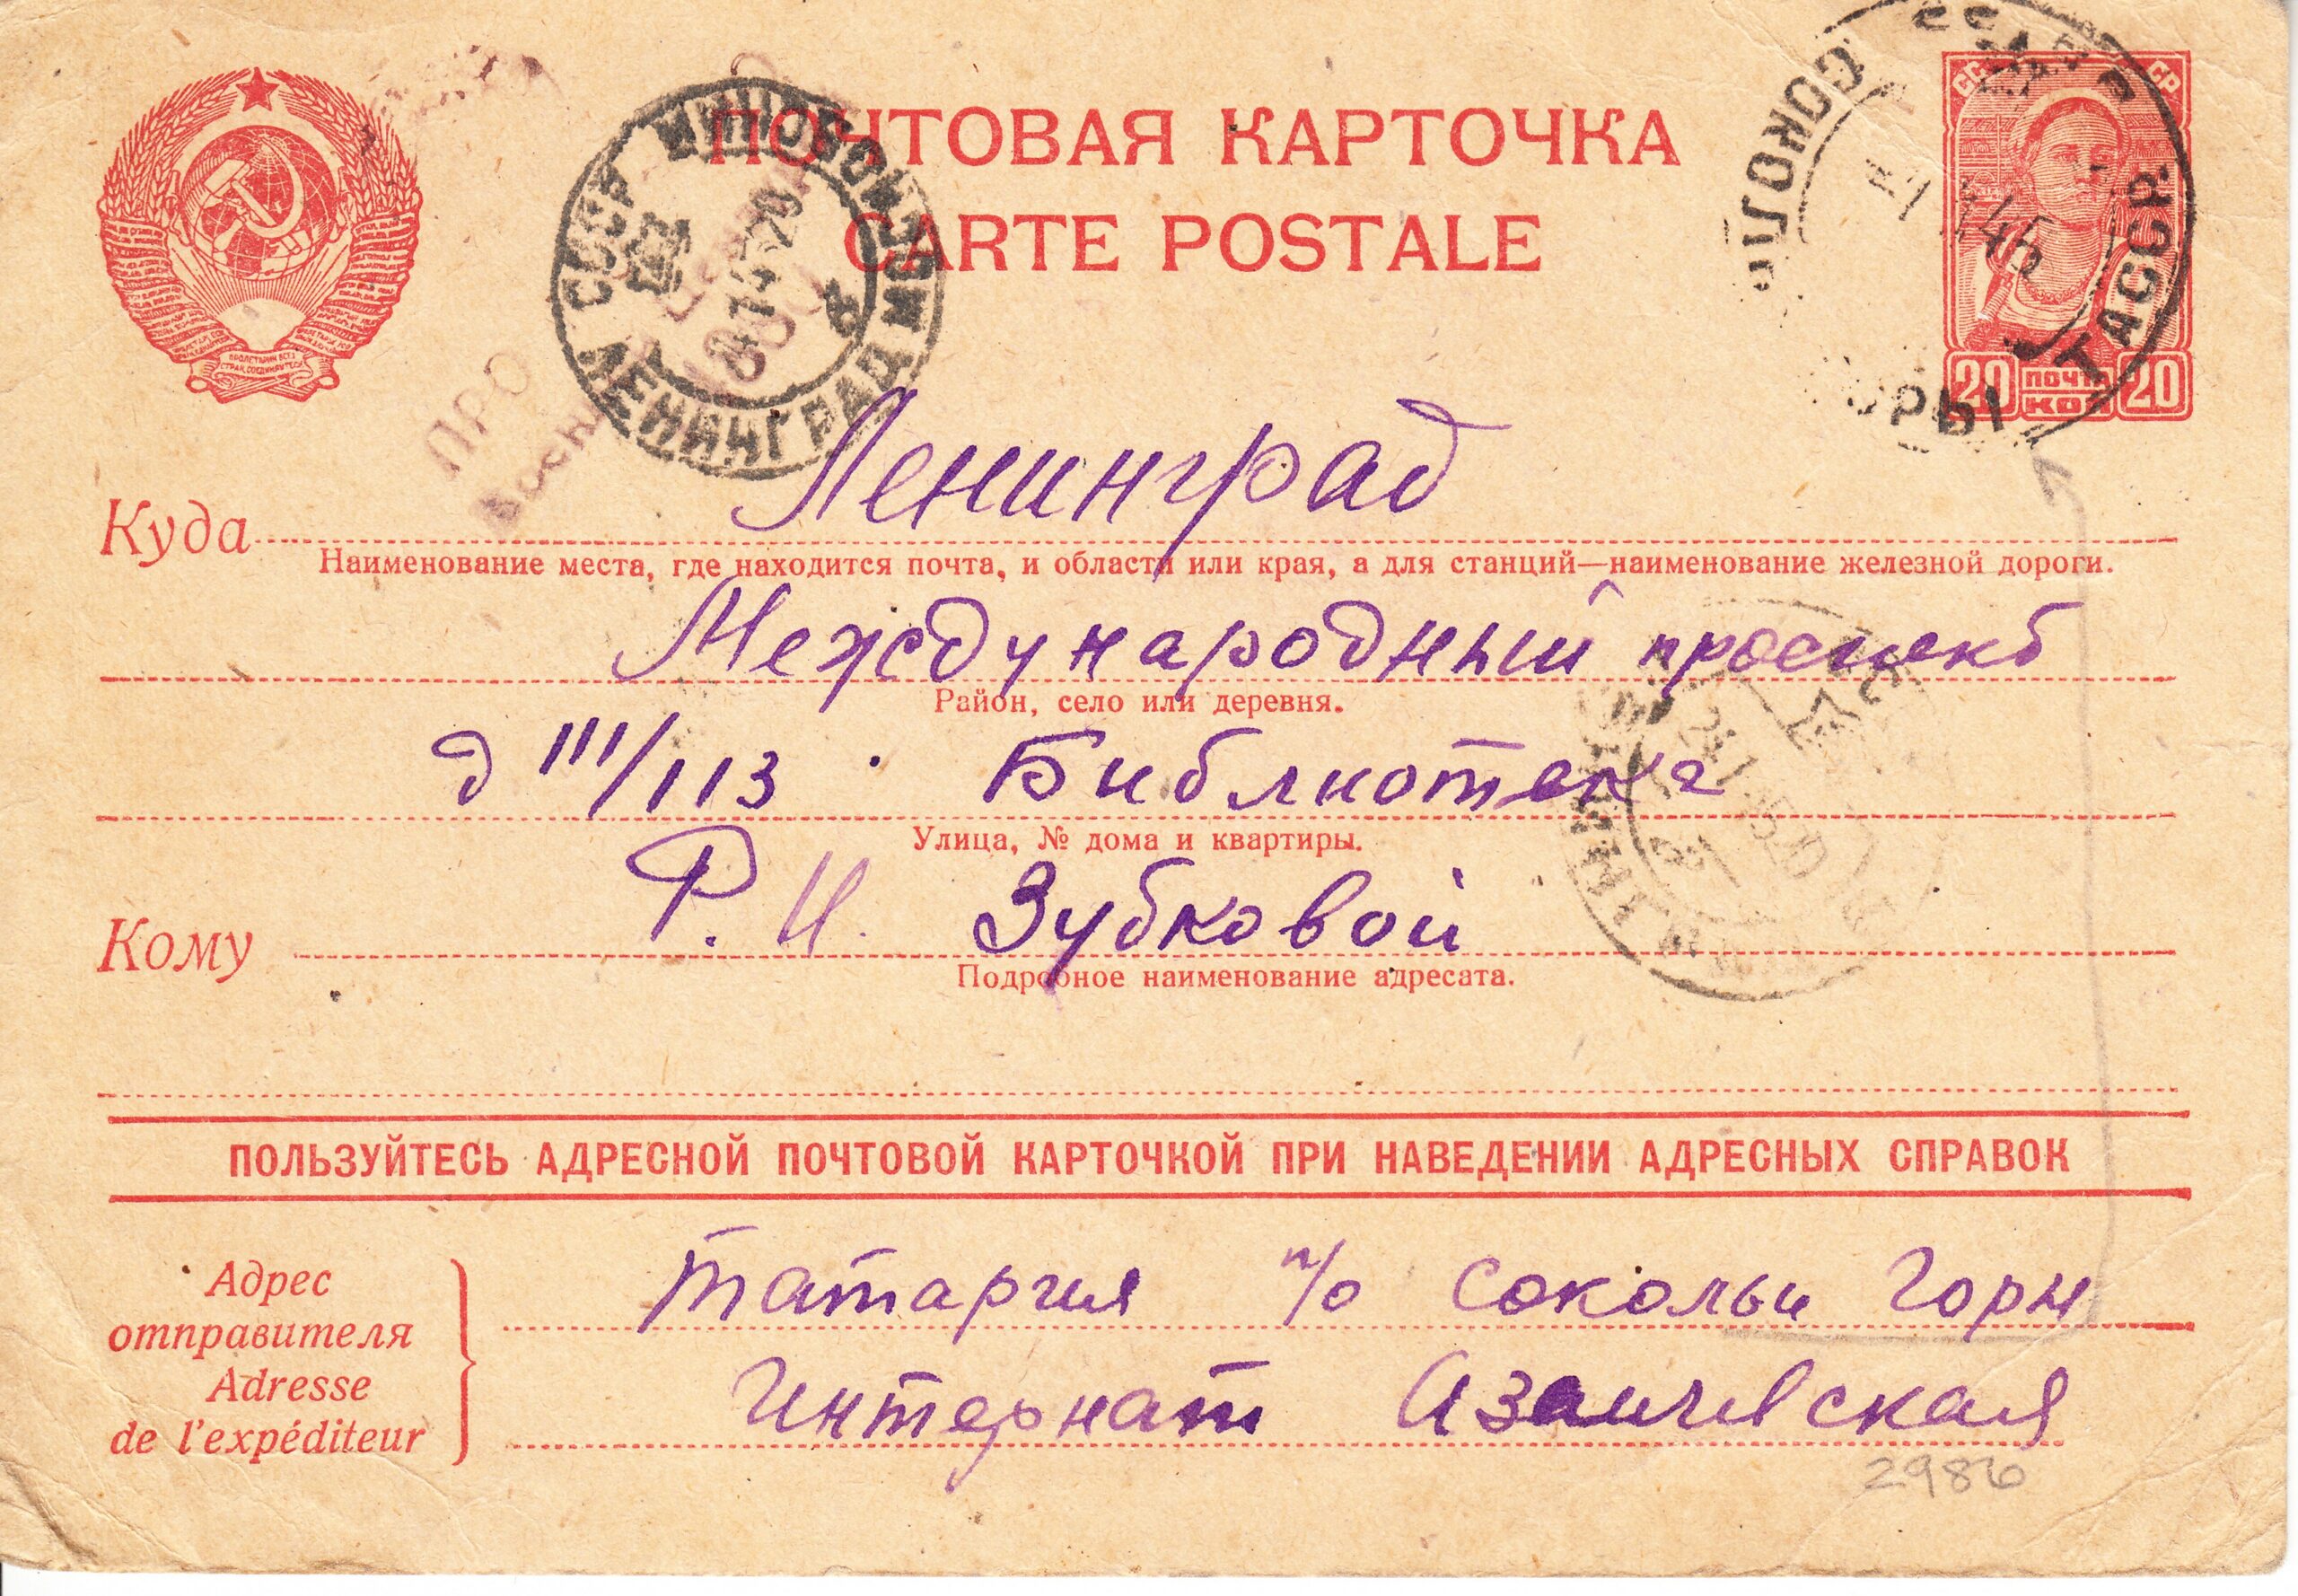 ПОЧТОВАЯ КАРТОЧКА
CARTE POSTALE
ПРОЛЕТАРИИ ВСЕХ
СТРАН, СОЕДИНЯЙТЕСЬ
СССР
ЛЕНИНГРАД
ТАССР
20 ПОЧТА 20
КОП
ПРО
Ленинград
Куда
Наименование места, где находится почта, и области или края, а для станций—наименование железной дороги.
Международный проспект
Район, село или деревня.
д 111/113 Библиотека
Улица, № дома и квартиры.
Р. И. Зубковой
Кому
Подробное наименование адресата.
ПОЛЬЗУЙТЕСЬ АДРЕСНОЙ ПОЧТОВОЙ КАРТОЧКОЙ ПРИ НАВЕДЕНИИ АДРЕСНЫХ СПРАВОК
Адрес
отправителя
Adresse
de l'expéditeur
Татария п/о Сокольи Горы
Интернат
2986